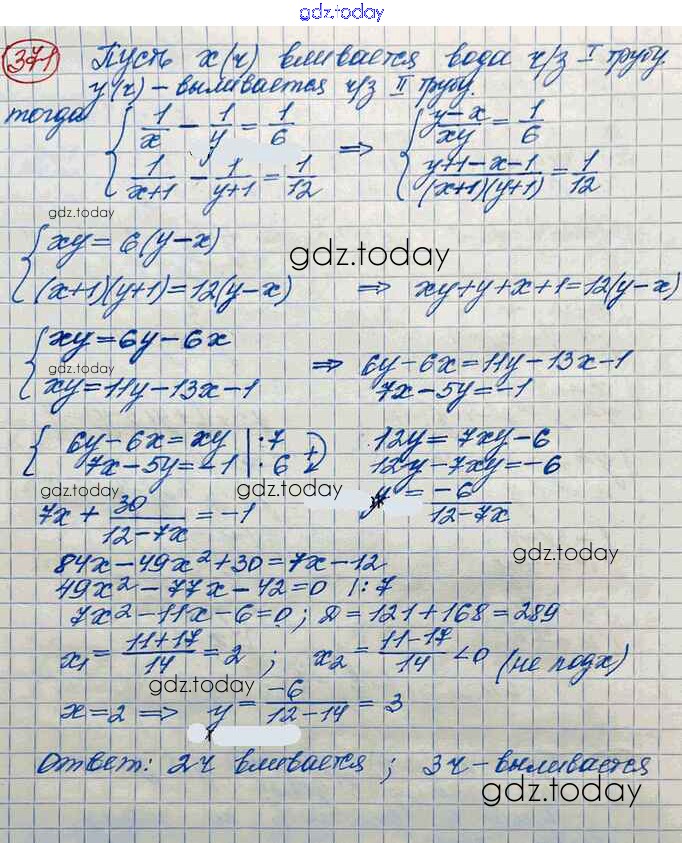 gdz.today
371 Пусть x(ч) вливается вода ч/з I трубу.
y(ч) – выливается ч/з II трубу.
тогда { 1/x − 1/y = 1/6 ⇒ { (y−x)/xy = 1/6
{ 1/(x+1) − 1/(y+1) = 1/12 { (y+1−x−1)/((x+1)(y+1)) = 1/12
gdz.today
{ xy = 6(y−x)
gdz.today
(x+1)(y+1) = 12(y−x) ⇒ xy+y+x+1 = 12(y−x)
{ xy = 6y−6x ⇒ 6y−6x = 11y−13x−1
gdz.today
xy = 11y−13x−1 7x−5y = −1
{ 6y−6x = xy | ·7 12y = 7xy−6
7x−5y = −1 | ·6 (+) 12y−7xy = −6
gdz.today gdz.today
7x + 30/(12−7x) = −1 y = −6/(12−7x)
gdz.today
84x−49x²+30 = 7x−12
49x²−77x−42 = 0 |:7
7x²−11x−6 = 0; D = 121+168 = 289
x₁ = (11+17)/14 = 2; x₂ = (11−17)/14 < 0 (не подх)
gdz.today
x = 2 ⇒ y = −6/(12−14) = 3
Ответ: 2ч вливается; 3ч – выливается
gdz.today